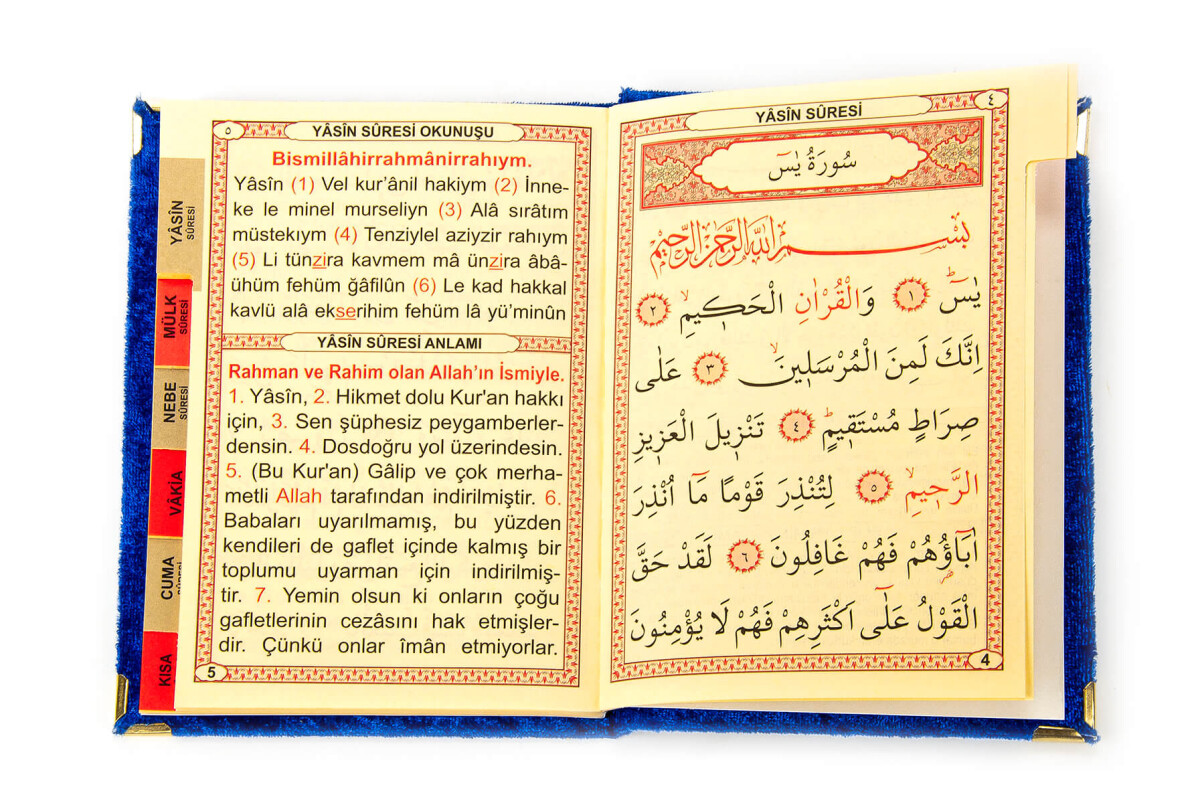 ٤
YÂSİN SÛRESİ
سُورَةُ يٰسٓ
بِسْمِ اللّٰهِ الرَّحْمٰنِ الرَّحٖيمِ
يٰسٓ ۚ ﴿١﴾ وَالْقُرْاٰنِ الْحَكٖيمِۙ ﴿٢﴾
اِنَّكَ لَمِنَ الْمُرْسَلٖينَۙ ﴿٣﴾ عَلٰى
صِرَاطٍ مُسْتَقٖيمٍۜ ﴿٤﴾ تَنْزٖيلَ الْعَزٖيزِ
الرَّحٖيمِۙ ﴿٥﴾ لِتُنْذِرَ قَوْمًا مَٓا اُنْذِرَ
اٰبَٓاؤُهُمْ فَهُمْ غَافِلُونَ ﴿٦﴾ لَقَدْ حَقَّ
الْقَوْلُ عَلٰٓى اَكْثَرِهِمْ فَهُمْ لَا يُؤْمِنُونَ
4
٥
YÂSÎN SÛRESİ OKUNUŞU
Bismillâhirrahmânirrahıym.
Yâsîn (1) Vel kur’ânil hakiym (2) İnne-
ke le minel murseliyn (3) Alâ sırâtım
müstekıym (4) Tenziylel aziyzir rahıym
(5) Li tünzira kavmem mâ ünzira âbâ-
ühüm fehüm ğâfilûn (6) Le kad hakkal
kavlü alâ ekserihim fehüm lâ yü’minûn
YÂSÎN SÛRESİ ANLAMI
Rahman ve Rahim olan Allah’ın İsmiyle.
1. Yâsîn, 2. Hikmet dolu Kur'an hakkı
için, 3. Sen şüphesiz peygamberler-
densin. 4. Dosdoğru yol üzerindesin.
5. (Bu Kur'an) Gâlip ve çok merha-
metli Allah tarafından indirilmiştir. 6.
Babaları uyarılmamış, bu yüzden
kendileri de gaflet içinde kalmış bir
toplumu uyarman için indirilmiş-
tir. 7. Yemin olsun ki onların çoğu
gafletlerinin cezâsını hak etmişler-
dir. Çünkü onlar îmân etmiyorlar.
5
YÂSÎN
SÛRESİ
MÜLK
SÛRESİ
NEBE
SÛRESİ
VÂKİA
CUMA
KISA